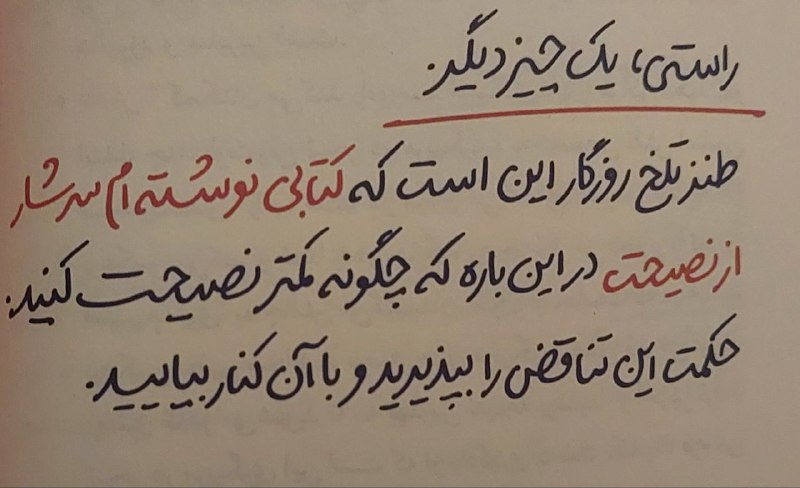 راستی، یک چیز دیگر.
طنز تلخ روزگار این است که کتابی نوشته ام سرشار
از نصیحت در این باره که چگونه کمتر نصیحت کنید.
حکمت این تناقض را بپذیرید و با آن کنار بیایید.